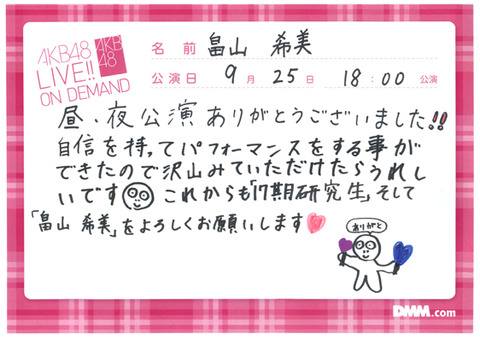 AKB48
LIVE!!
ON DEMAND
AKB
48
名 前 畠山 希美
公演日 9月 25日 18:00 公演
昼、夜公演 ありがとうございました!!
自信を持ってパフォーマンスをする事が
できたので沢山みていただけたらうれし
いです これからも「17期研究生」、そして
「畠山 希美」をよろしくお願いします
ありがと
DMM.com